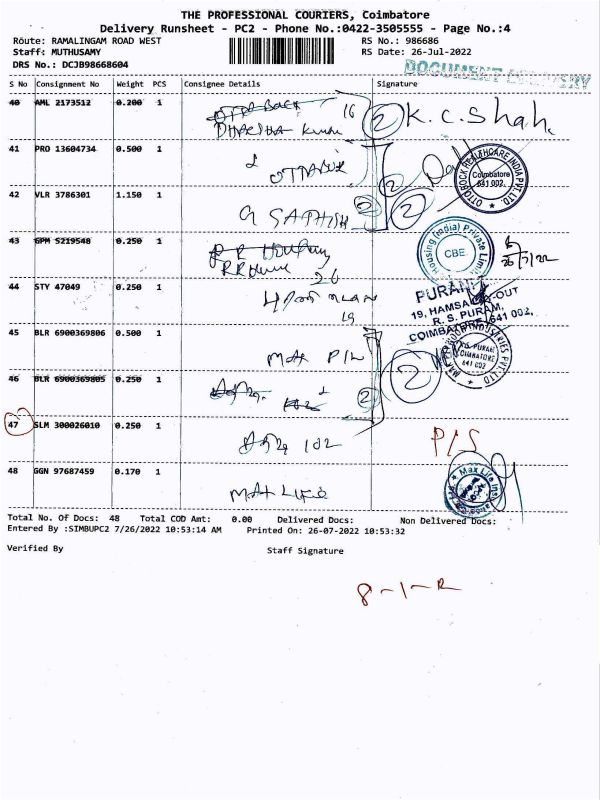 THE PROFESSIONAL COURIERS, Coimbatore
Delivery Runsheet - PC2 - Phone No.:0422-3505555 - Page No.:4
Route: RAMALINGAM ROAD WEST RS No.: 986686
Staff: MUTHUSAMY RS Date: 26-Jul-2022
DRS No.: DCJB98668604
DOCUMENT DELIVERY
S No Consignment No Weight PCS Consignee Details Signature
40 AML 2173512 0.200 1 16 2 K.C. Shah.
41 PRO 13604734 0.500 1
OTTOBOCK HEALTHCARE INDIA PVT. LTD. Coimbatore 641 002.
42 VLR 3786301 1.150 1 2 2 2
G SATHISH
43 GPM 5219548 0.250 1
Housing (India) Private Limited CBE.
26/7/22
44 STY 47049 0.250 1 26
PURAM
19, HAMSA LAY-OUT
R. S. PURAM,
COIMBATORE 641 002.
19
45 BLR 6900369806 0.500 1
Max P/L
R.S. PURAM COIMBATORE 641 002
46 BLR 6900369805 0.250 1 2 2
47 SLM 300026010 0.250 1
102 P/S
48 GGN 97687459 0.170 1
Max Life
Max Life Ins
Total No. Of Docs: 48 Total COD Amt: 0.00 Delivered Docs: Non Delivered Docs:
Entered By :SIMBUPC2 7/26/2022 10:53:14 AM Printed On: 26-07-2022 10:53:32
Verified By Staff Signature
8-1-R